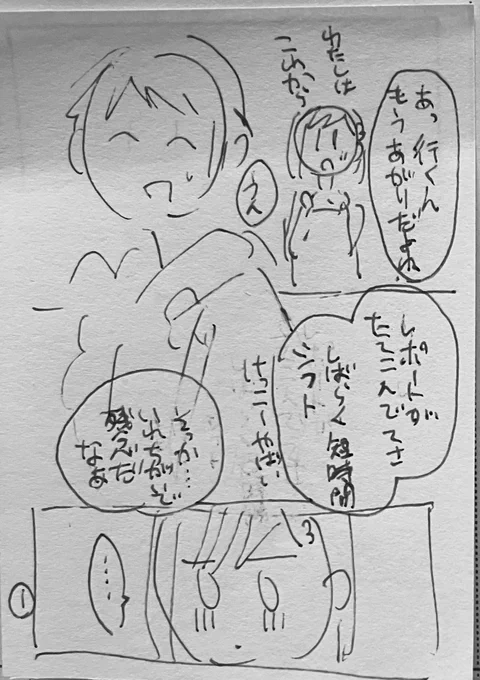 あっ 行くん
もうあがりだよね
わたしは
これから
うん
レポートが
たてこんでてさ
しばらく短時間
シフト
けっこーやばい
そっか…
いれちがいぞ
残念だ
なあ
……
①